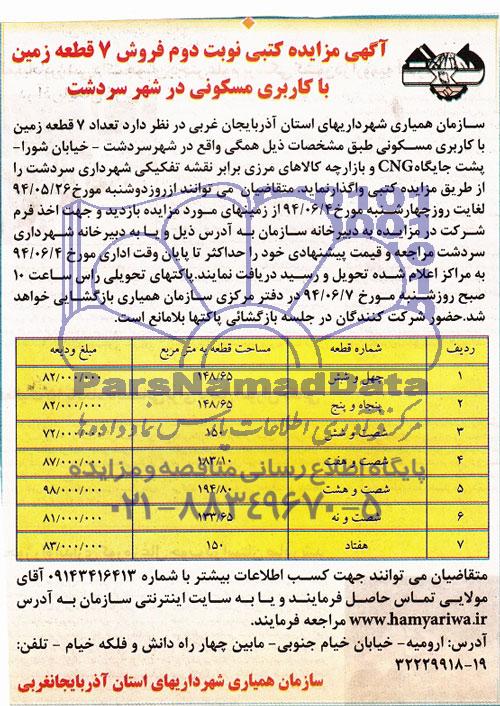 آگهی مزایده کتبی نوبت دوم فروش ۷ قطعه زمین
با کاربری مسکونی در شهر سردشت
سازمان همیاری شهرداریهای استان آذربایجان غربی در نظر دارد تعداد ۷ قطعه زمین
با کاربری مسکونی طبق مشخصات ذیل همگی واقع در شهرسردشت - خیابان شورا-
پشت جایگاه CNG و بازارچه کالاهای مرزی برابر نقشه تفکیکی شهرداری سردشت را
از طریق مزایده کتبی واگذارنماید. متقاضیان می توانند ازروزدوشنبه مورخ ۹۴/۰۵/۲۶
لغایت روزچهارشنبه مورخ ۹۴/۰۶/۴ از زمینهای مورد مزایده بازدید و جهت اخذ فرم
شرکت در مزایده به دبیرخانه سازمان به آدرس ذیل و یا به دبیرخانه شهرداری
سردشت مراجعه و قیمت پیشنهادی خود را حداکثر تا پایان وقت اداری مورخ ۹۴/۰۶/۴
به مراکز اعلام شده تحویل و رسید دریافت نمایند. پاکتهای تحویلی راس ساعت ۱۰
صبح روزشنبه مورخ ۹۴/۰۶/۷ در دفتر مرکزی سازمان همیاری بازگشایی خواهد
شد.حضور شرکت کنندگان در جلسه بازگشائی پاکتها بلامانع است.
ردیف شماره قطعه مساحت قطعه به متر مربع مبلغ ودیعه
۱ چهل و شش ۱۴۸/۶۵ ۸۲/۰۰۰/۰۰۰
۲ پنجاه و پنج ۱۴۸/۶۵ ۸۲/۰۰۰/۰۰۰
۳ شصت و شش ۱۵۰ ۷۲/۰۰۰/۰۰۰
۴ شصت و هفت ۱۸۳/۱۰ ۸۷/۰۰۰/۰۰۰
۵ شصت و هشت ۱۹۴/۸۰ ۹۸/۰۰۰/۰۰۰
۶ شصت و نه ۱۳۳/۶۵ ۸۱/۰۰۰/۰۰۰
۷ هفتاد ۱۵۰ ۸۳/۰۰۰/۰۰۰
ParsNamadData
مرکز فرآوری اطلاعات پارس نماد داده ها
پایگاه اطلاع رسانی مناقصه و مزایده
۰۲۱-۸۸۳۴۹۶۷۰-۵
متقاضیان می توانند جهت کسب اطلاعات بیشتر با شماره ۰۹۱۴۳۴۱۶۴۱۳ آقای
مولایی تماس حاصل فرمایند و یا به سایت اینترنتی سازمان به آدرس
www.hamyariwa.ir مراجعه فرمایند.
آدرس: ارومیه- خیابان خیام جنوبی- مابین چهار راه دانش و فلکه خیام - تلفن:
۳۲۲۲۹۹۱۸-۱۹
سازمان همیاری شهرداریهای استان آذربایجانغربی